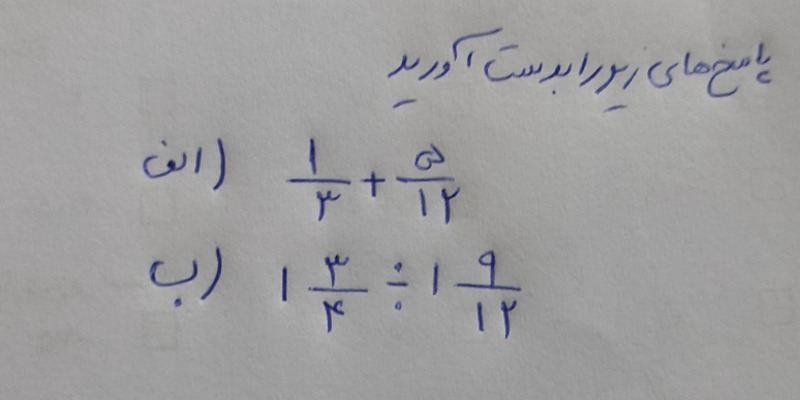 پاسخ‌های زیر را بدست آورید
الف) ۱/۳ + ۵/۱۲
ب) ۱ ۳/۴ ÷ ۱ ۹/۱۲